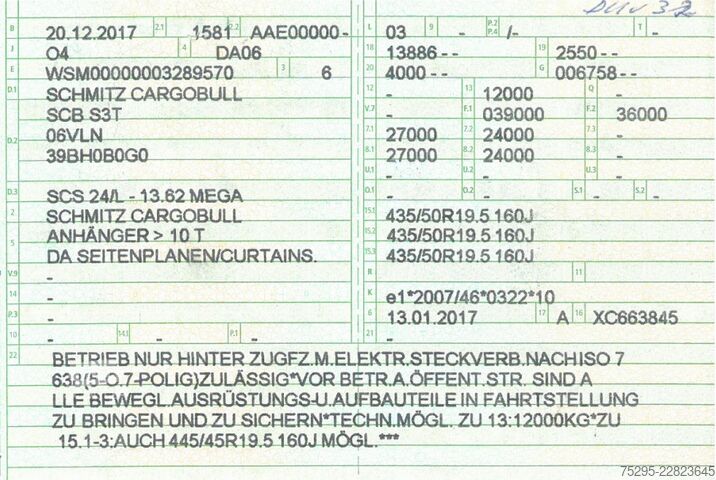 DUv 32
B 20.12.2017 2.1 1581 2.2 AAE00000-
J O4 4 DA06
E WSM00000003289570 3 6
D.1 SCHMITZ CARGOBULL
SCB S3T
D.2 06VLN
39BH0B0G0
D.3 SCS 24/L - 13.62 MEGA
2 SCHMITZ CARGOBULL
5 ANHÄNGER > 10 T
DA SEITENPLANEN/CURTAINS.
V.9 -
14 -
P.3 -
10 - 14.1 - P.1 -
L 03 9 - P.2 P.4 /- T -
18 13886-- 19 2550--
20 4000-- G 006758--
12 - 13 12000 Q -
V.7 - F.1 039000 F.2 36000
7.1 27000 7.2 24000 7.3 -
8.1 27000 8.2 24000 8.3 -
U.1 - U.2 - U.3 -
O.1 - O.2 - S.1 - S.2 -
15.1 435/50R19.5 160J
15.2 435/50R19.5 160J
15.3 435/50R19.5 160J
R - 11 -
K e1*2007/46*0322*10
6 13.01.2017 17 A 16 XC663845
21 -
22 BETRIEB NUR HINTER ZUGFZ.M.ELEKTR.STECKVERB.NACH ISO 7
638(5-O.7-POLIG)ZULÄSSIG*VOR BETR.A.ÖFFENT.STR. SIND A
LLE BEWEGL.AUSRÜSTUNGS-U.AUFBAUTEILE IN FAHRTSTELLUNG
ZU BRINGEN UND ZU SICHERN*TECHN.MÖGL. ZU 13:12000KG*ZU
15.1-3:AUCH 445/45R19.5 160J MÖGL.***
75295-22823645